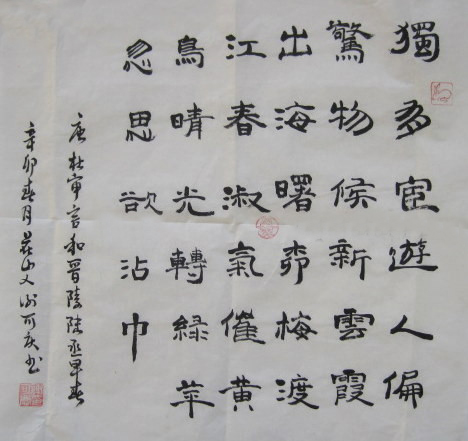 獨多宦遊人偏
驚物候新雲霞
出海曙桺梅渡
江春淑氣催黃
鳥晴光轉綠苹
忽思欲沾巾
唐杜審言和晉陵陸丞早春
辛卯春月山可庆书